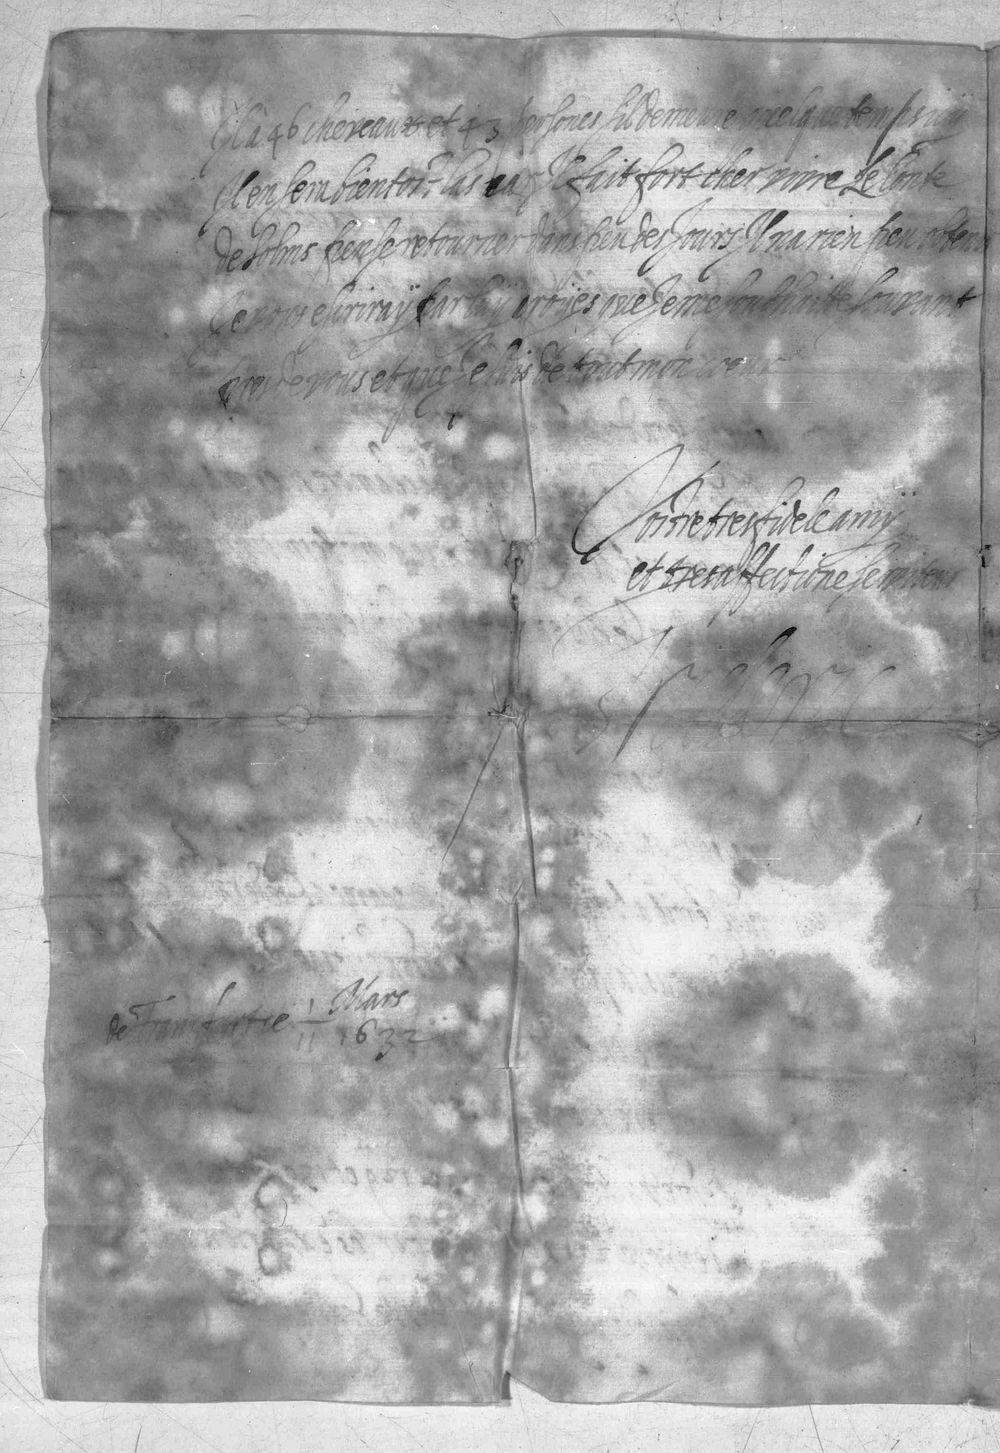 Il a 46 chevaux et 43 persones s'il demeure quelque temps icy
Il en sera bientost las car Il fait fort cher vivre Le Conte
de Solms pense retourner dans peu de Jours Il n'a rien peu obtenir
Je vous escriray par luy croyés que Je me souhaitte souvant
pres de vous et que Je suis de tout mon coeur
Vostre tres fidele amy
et tres affectioné serviteur
de Francfort ce 1/11 Mars
1632